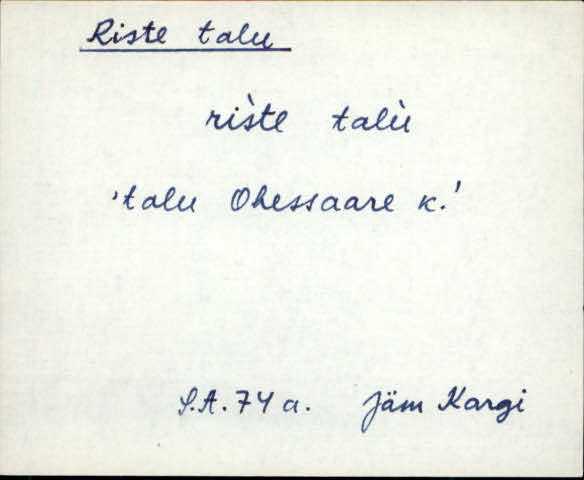 Riste talu
rìste talù
'talu Ohessaare k.'
S.A. 74 a. Jäm Kargi